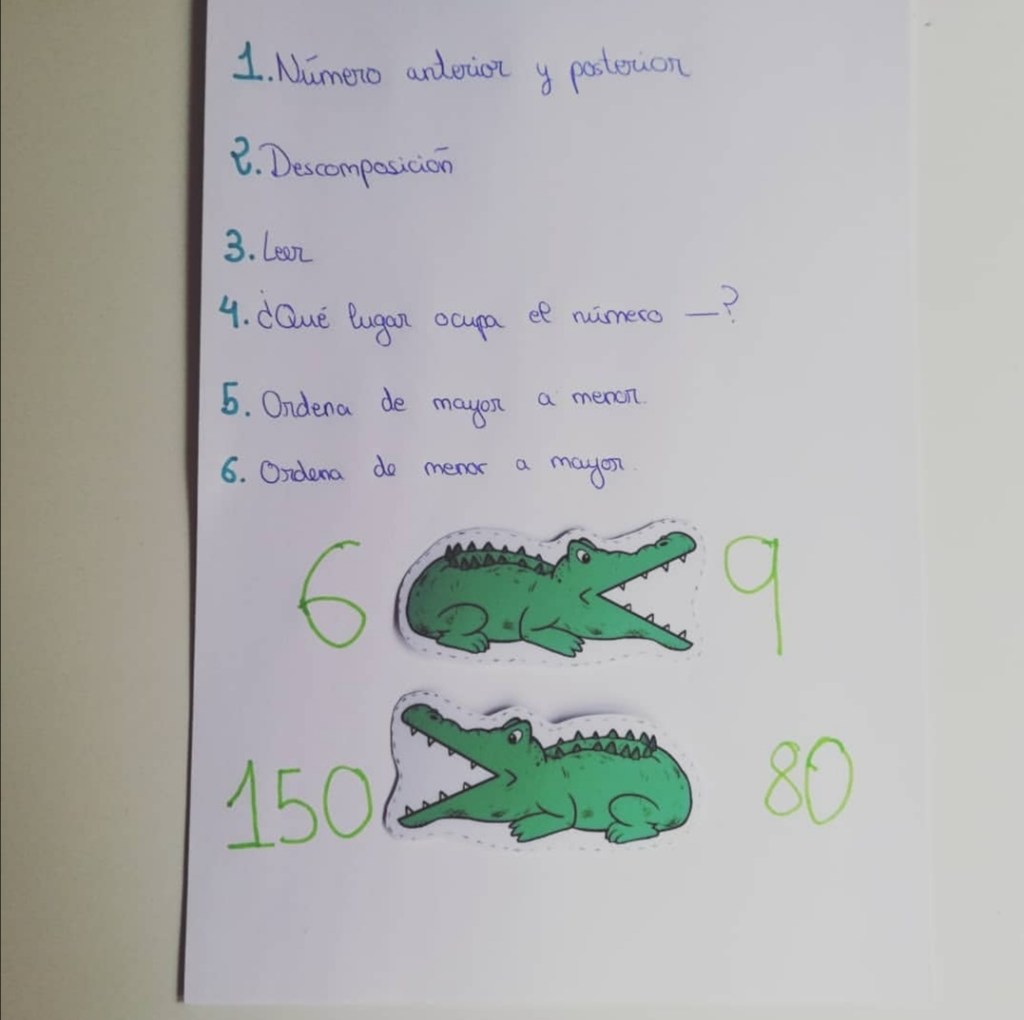 1. Número anterior y posterior
2. Descomposición
3. Leer
4. ¿Qué lugar ocupa el número —?
5. Ordena de mayor a menor.
6. Ordena de menor a mayor.
6 9
150 80